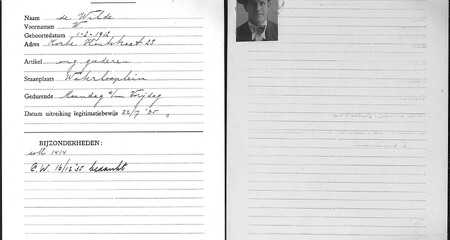 Naam de Wilde
Voornamen W
Geboortedatum 1-2-1912
Adres Korte Houtstraat 23
Artikel ong. goederen
Staanplaats Waterlooplein
Gedurende Maandag t/m Vrijdag
Datum uitreiking legitimatiebewijs 22/7 '35
BIJZONDERHEDEN:
1414
C.W. 16/12 '35 bedankt